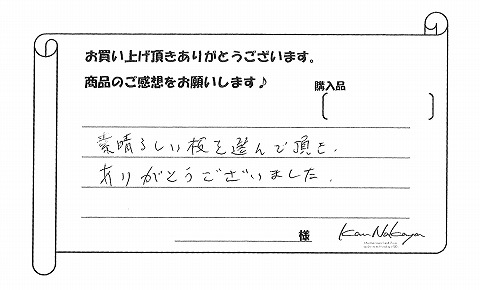 お買い上げ頂きありがとうございます。
商品のご感想をお願いします♪
購入品
素晴らしい板を選んで頂き、
ありがとうございました。
様
Kan Nakaya